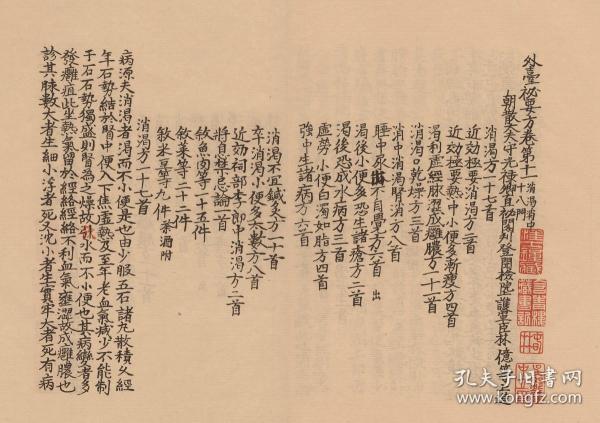 外臺秘要方卷第十一 消渴消中十八門
朝散大夫守光祿卿直秘閣判登聞檢院上護軍臣林億等上進
消渴方一十七首
近効極要消渴方二首
近効極要熱中小便多漸瘦方四首
渴利虛經脉澀成癰膿方一十一首
消渴口乾燥方三首
消中消渴腎消方八首
睡中尿不自覺方六首 出
渴後小便多恐生諸瘡方二首
渴後恐成水病方三首
虛勞小便白濁如脂方四首
強中生諸病方六首
消渴不宜鍼灸方一十首
卒消渴小便多太數方八首
近効祠部李郎中消渴方二首
將息禁忌論一首
敘魚肉等一十五件
敘菜等二十二件
敘米豆等九件 茶酒附
消渴方一十七首
病源夫消渴者渴而不小便是也由少服五石諸丸散積久經
年石勢結於腎中使人下焦虛熱及至年老血氣減少不能制
于石石勢獨盛則腎為之燥故引水而不小便也其病變者多
發癰疽此坐熱氣留於經絡經絡不利血氣壅澀故成癰膿也
診其脉數大者生細小浮者死又沈小者生實牢大者死有病
孔夫子旧书网